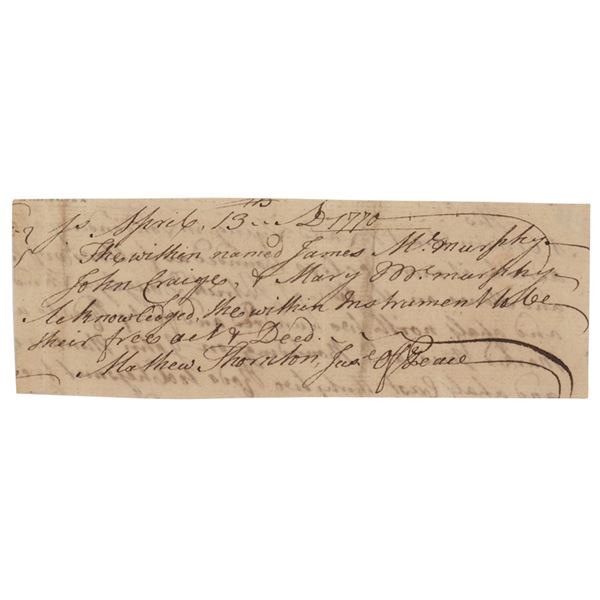 ss. April, 13th D 1770
The within named James Mc.murphy
John Craige, & Mary Mc.murphy
Acknowledged, the within Instrument to be
their free act & Deed.
Mathew Thornton, Jus.e Of Peace